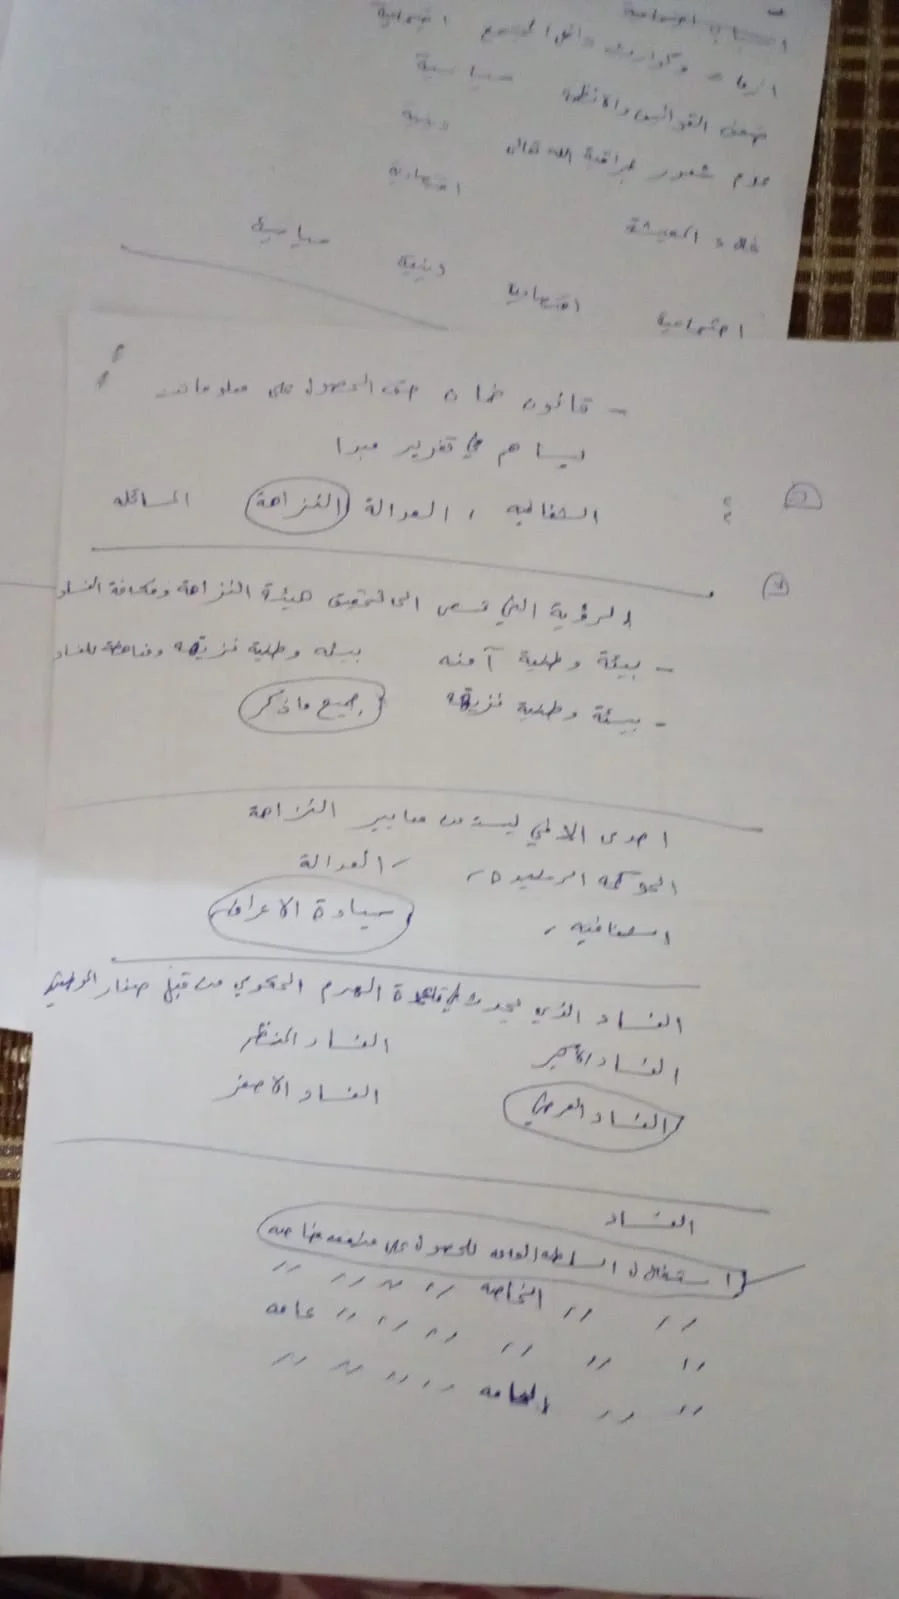 ازمات وكوارث داخل المجتمع اجتماعية
ضعف القوانين والانظمه سياسية
عدم شعور بمراقبة الله تعالى دينية
غلاء المعيشة اقتصادية
اجتماعية اقتصادية دينية سياسية
- قانون ضمان حق الحصول على معلومات
يساهم في تعزير مبدا
الشفافيه ، العدالة النزاهة المسائله
الرؤية التي تسعى الى تحقيق هيئة النزاهة ومكافحة الفساد
- بيئة وطنية آمنه بيئه وطنية نزيهه ومناهضة للفساد
- بيئة وطنية نزيهه جميع ما ذكر
احدى الاتي ليست من معايير النزاهة
الحوكمه الرشيدة ، العدالة
الشفافيه ، سيادة الاعراف
الفساد الذي يحدث في قاعدة الهرم الحكومي من قبل صغار الموظفين
الفساد الأكبر الفساد المنظم
الفساد العرضي الفساد الاصغر
الفساد
استغلال السلطه العامه للحصول على منافعه خاصه
〃 〃 الخاصه 〃 〃 〃 〃
〃 〃 〃 〃 〃 〃 عامه
〃 〃 العامه 〃 〃 〃 〃